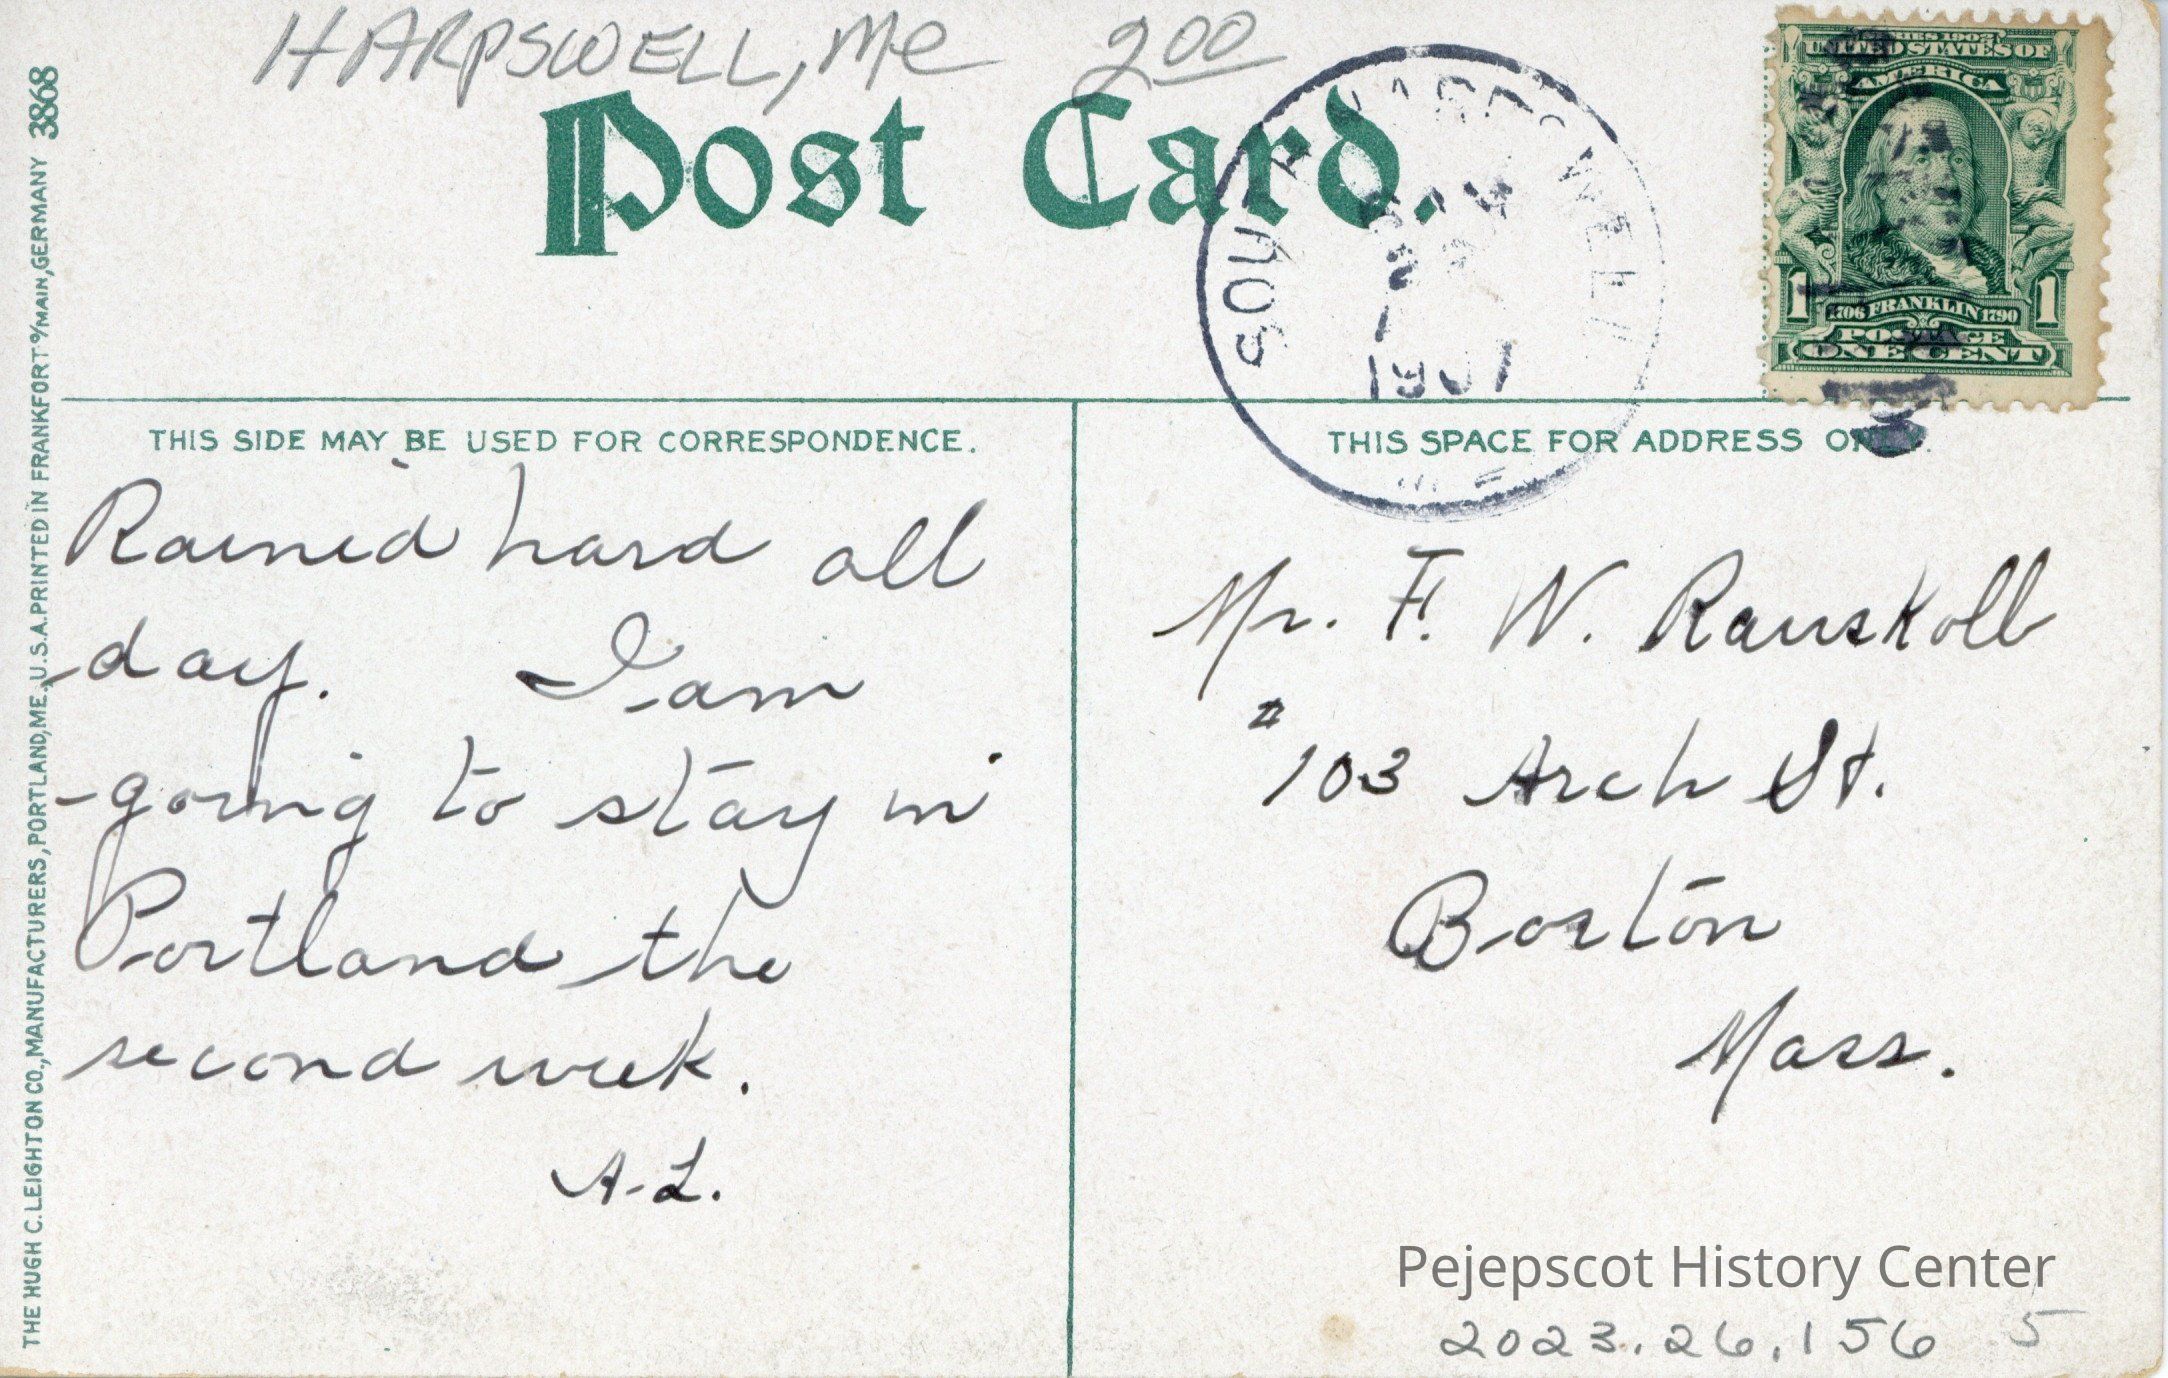 HARPSWELL, Me 2 00
Post Card.
SOUTH HARPSWELL
1907
ME
SERIES 1902
UNITED STATES OF
AMERICA
1 1
1706 FRANKLIN 1790
POSTAGE
ONE CENT
THE HUGH C. LEIGHTON CO., MANUFACTURERS, PORTLAND, ME., U.S.A. PRINTED IN FRANKFORT o/MAIN, GERMANY 3868
THIS SIDE MAY BE USED FOR CORRESPONDENCE.
Rained hard all
day. I am
going to stay in
Portland the
second week.
A.L.
THIS SPACE FOR ADDRESS ONLY.
Mr. F. W. Rauskolb
# 103 Arch St.
Boston
Mass.
Pejepscot History Center
2023.26.156 5